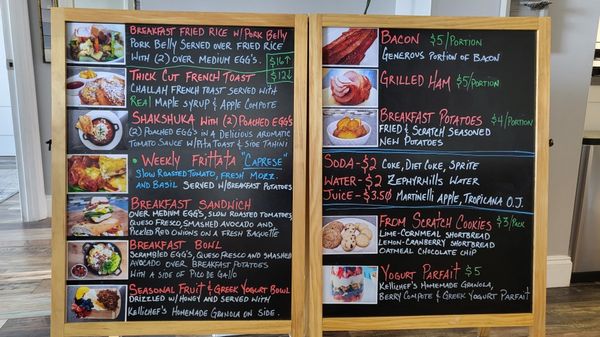 Breakfast Fried Rice w/Pork Belly
Pork Belly Served over Fried Rice
w/ Over Medium Egg's.
$16↑
Thick Cut French Toast
$12↓
Challah French Toast served with
Real Maple Syrup & Apple Compote
Shakshuka with (2) Poached Egg's
(2) Poached Egg's in a Delicious Aromatic
Tomato Sauce w/Pita Toast & Side Tahini
• Weekly Frittata "Caprese"
Slow Roasted Tomato, Fresh Mozz.
and Basil Served w/Breakfast Potatoes
Breakfast Sandwich
Over Medium Egg's, Slow Roasted Tomatoes,
Queso Fresco, Smashed Avocado and
Pickled Red Onions on a Fresh Baguette
Breakfast Bowl
Scrambled Egg's, Queso Fresco and Smashed
Avocado over Breakfast Potatoes
with a side of Pico de Gallo
Seasonal Fruit & Greek Yogurt Bowl
Drizzled w/Honey and served with
Kellichef's Homemade Granola on side.
Bacon $5/Portion
Generous Portion of Bacon
Grilled Ham $5/Portion
Breakfast Potatoes $4/Portion
Fried & Scratch Seasoned
New Potatoes
Soda-$2 Coke, Diet Coke, Sprite
Water-$2 Zephyrhills Water
Juice-$3.50 Martinelli Apple, Tropicana O.J.
From Scratch Cookies $3/Pack
Lime-Cornmeal Shortbread
Lemon-Cranberry Shortbread
Oatmeal Chocolate Chip
Yogurt Parfait $5
Kellichef's Homemade Granola,
Berry Compote & Greek Yogurt Parfait